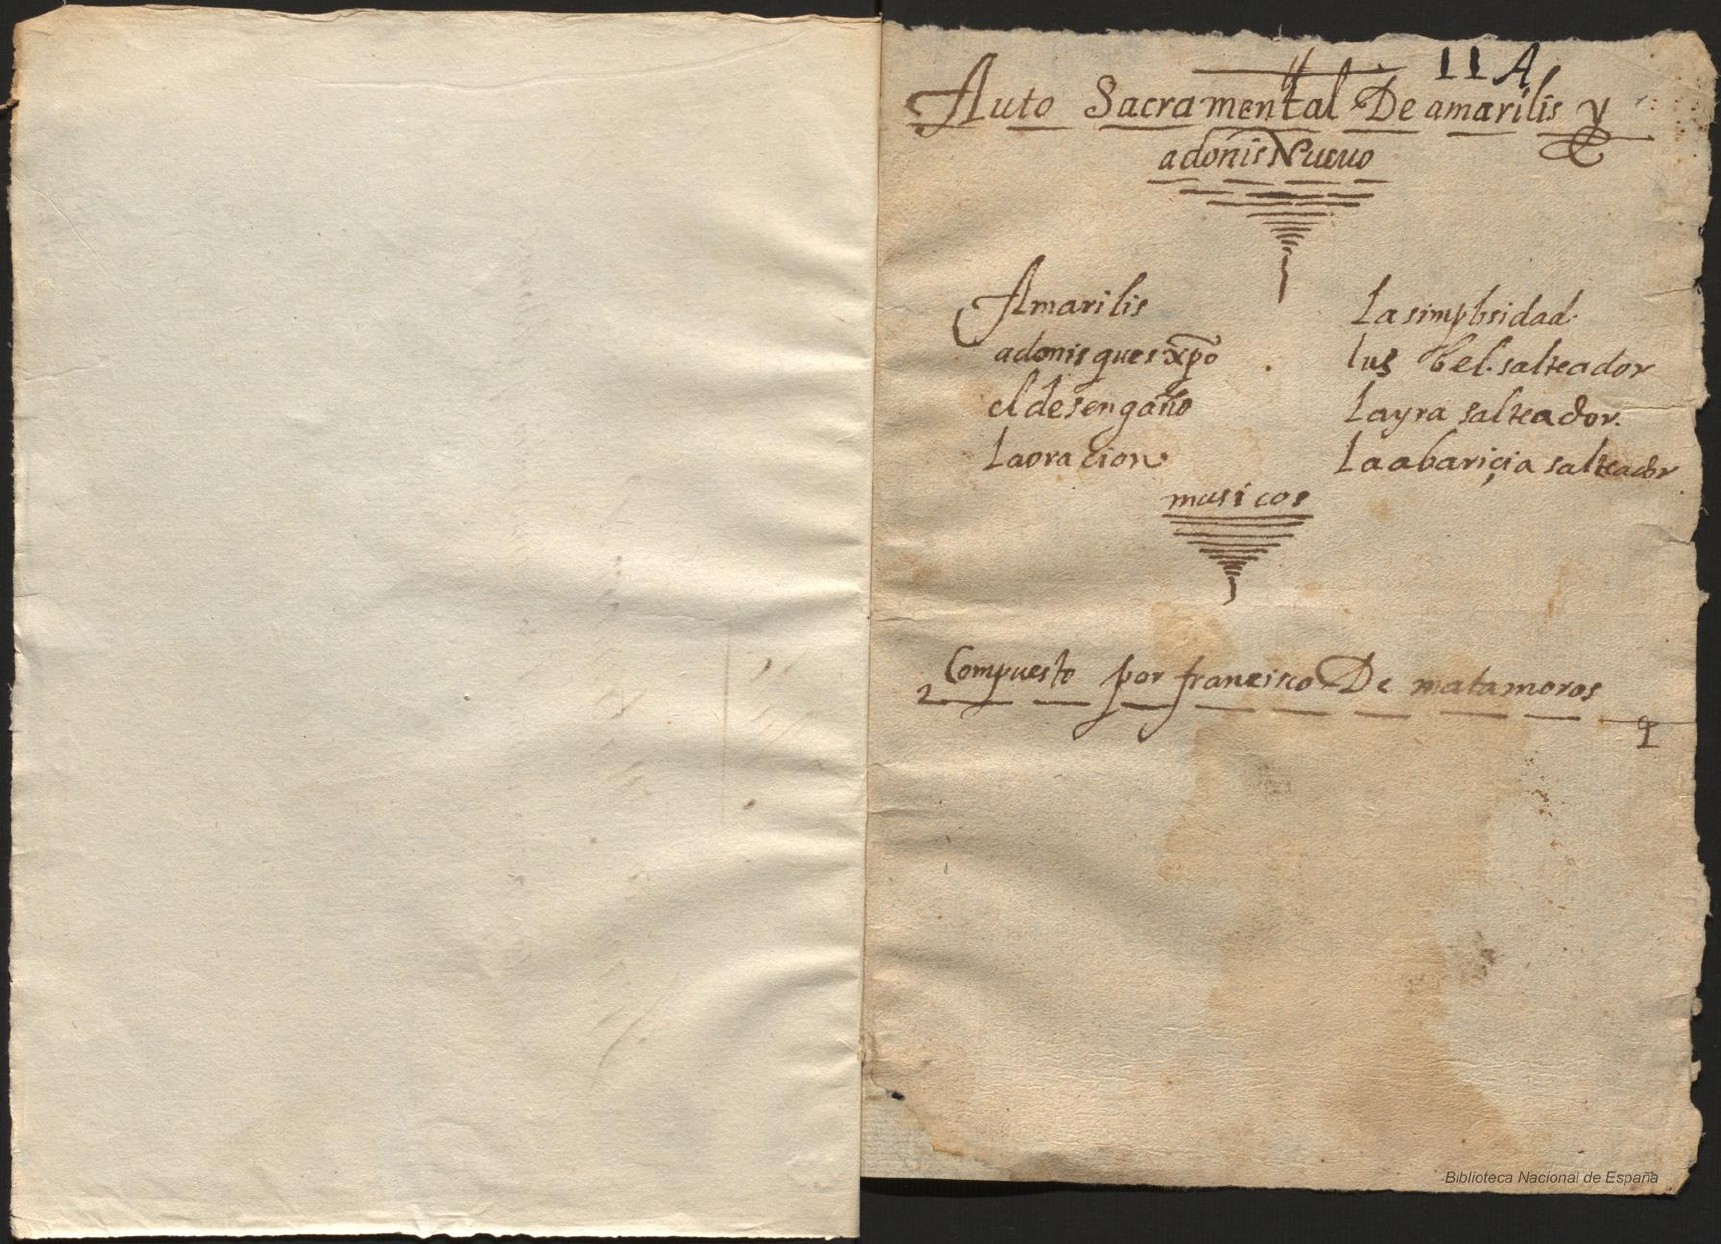 II A
Auto Sacramental De amarilis y
adonis Nueuo
Amarilis
adonis ques xp̃o
el desengaño
La oracion
La simplisidad
lus bel. salteador
La yra salteador.
La abariçia salteador
musicos
Compuesto por francisco De matamoros
Biblioteca Nacional de España